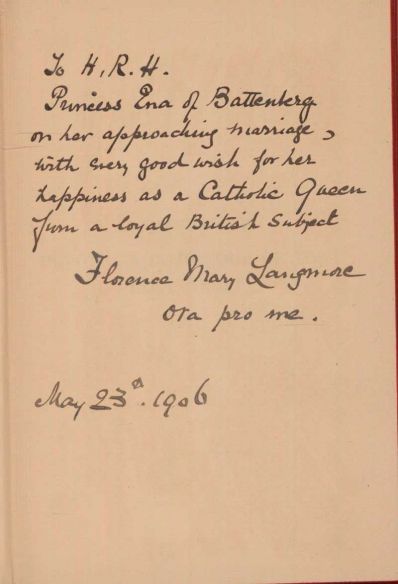 To H.R.H.
Princess Ena of Battenberg
on her approaching marriage,
with every good wish for her
happiness as a Catholic Queen
from a loyal British Subject
Florence Mary Langmore
Ora pro me.
May 23ᵈ. 1906